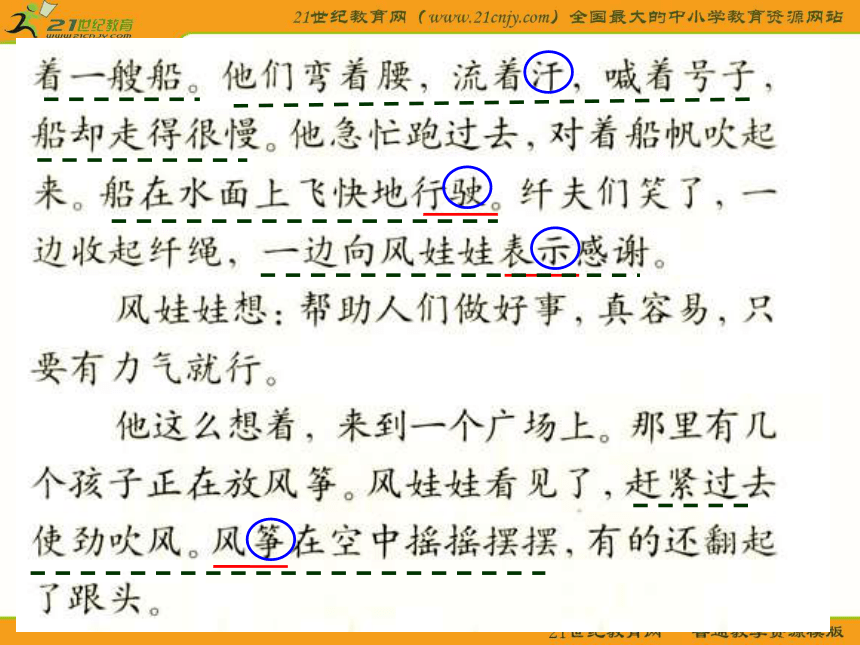 21世纪教育网
www.21cnjy.com
21世纪教育网（www.21cnjy.com）全国最大的中小学教育资源网站
着一艘船。他们弯着腰，流着汗，喊着号子，
船却走得很慢。他急忙跑过去，对着船帆吹起
来。船在水面上飞快地行驶。纤夫们笑了，一
边收起纤绳，一边向风娃娃表示感谢。
风娃娃想：帮助人们做好事，真容易，只
要有力气就行。
他这么想着，来到一个广场上。那里有几
个孩子正在放风筝。风娃娃看见了，赶紧过去
使劲吹风。风筝在空中摇摇摆摆，有的还翻起
了跟头。
21世纪教育网 普通教学资源模版